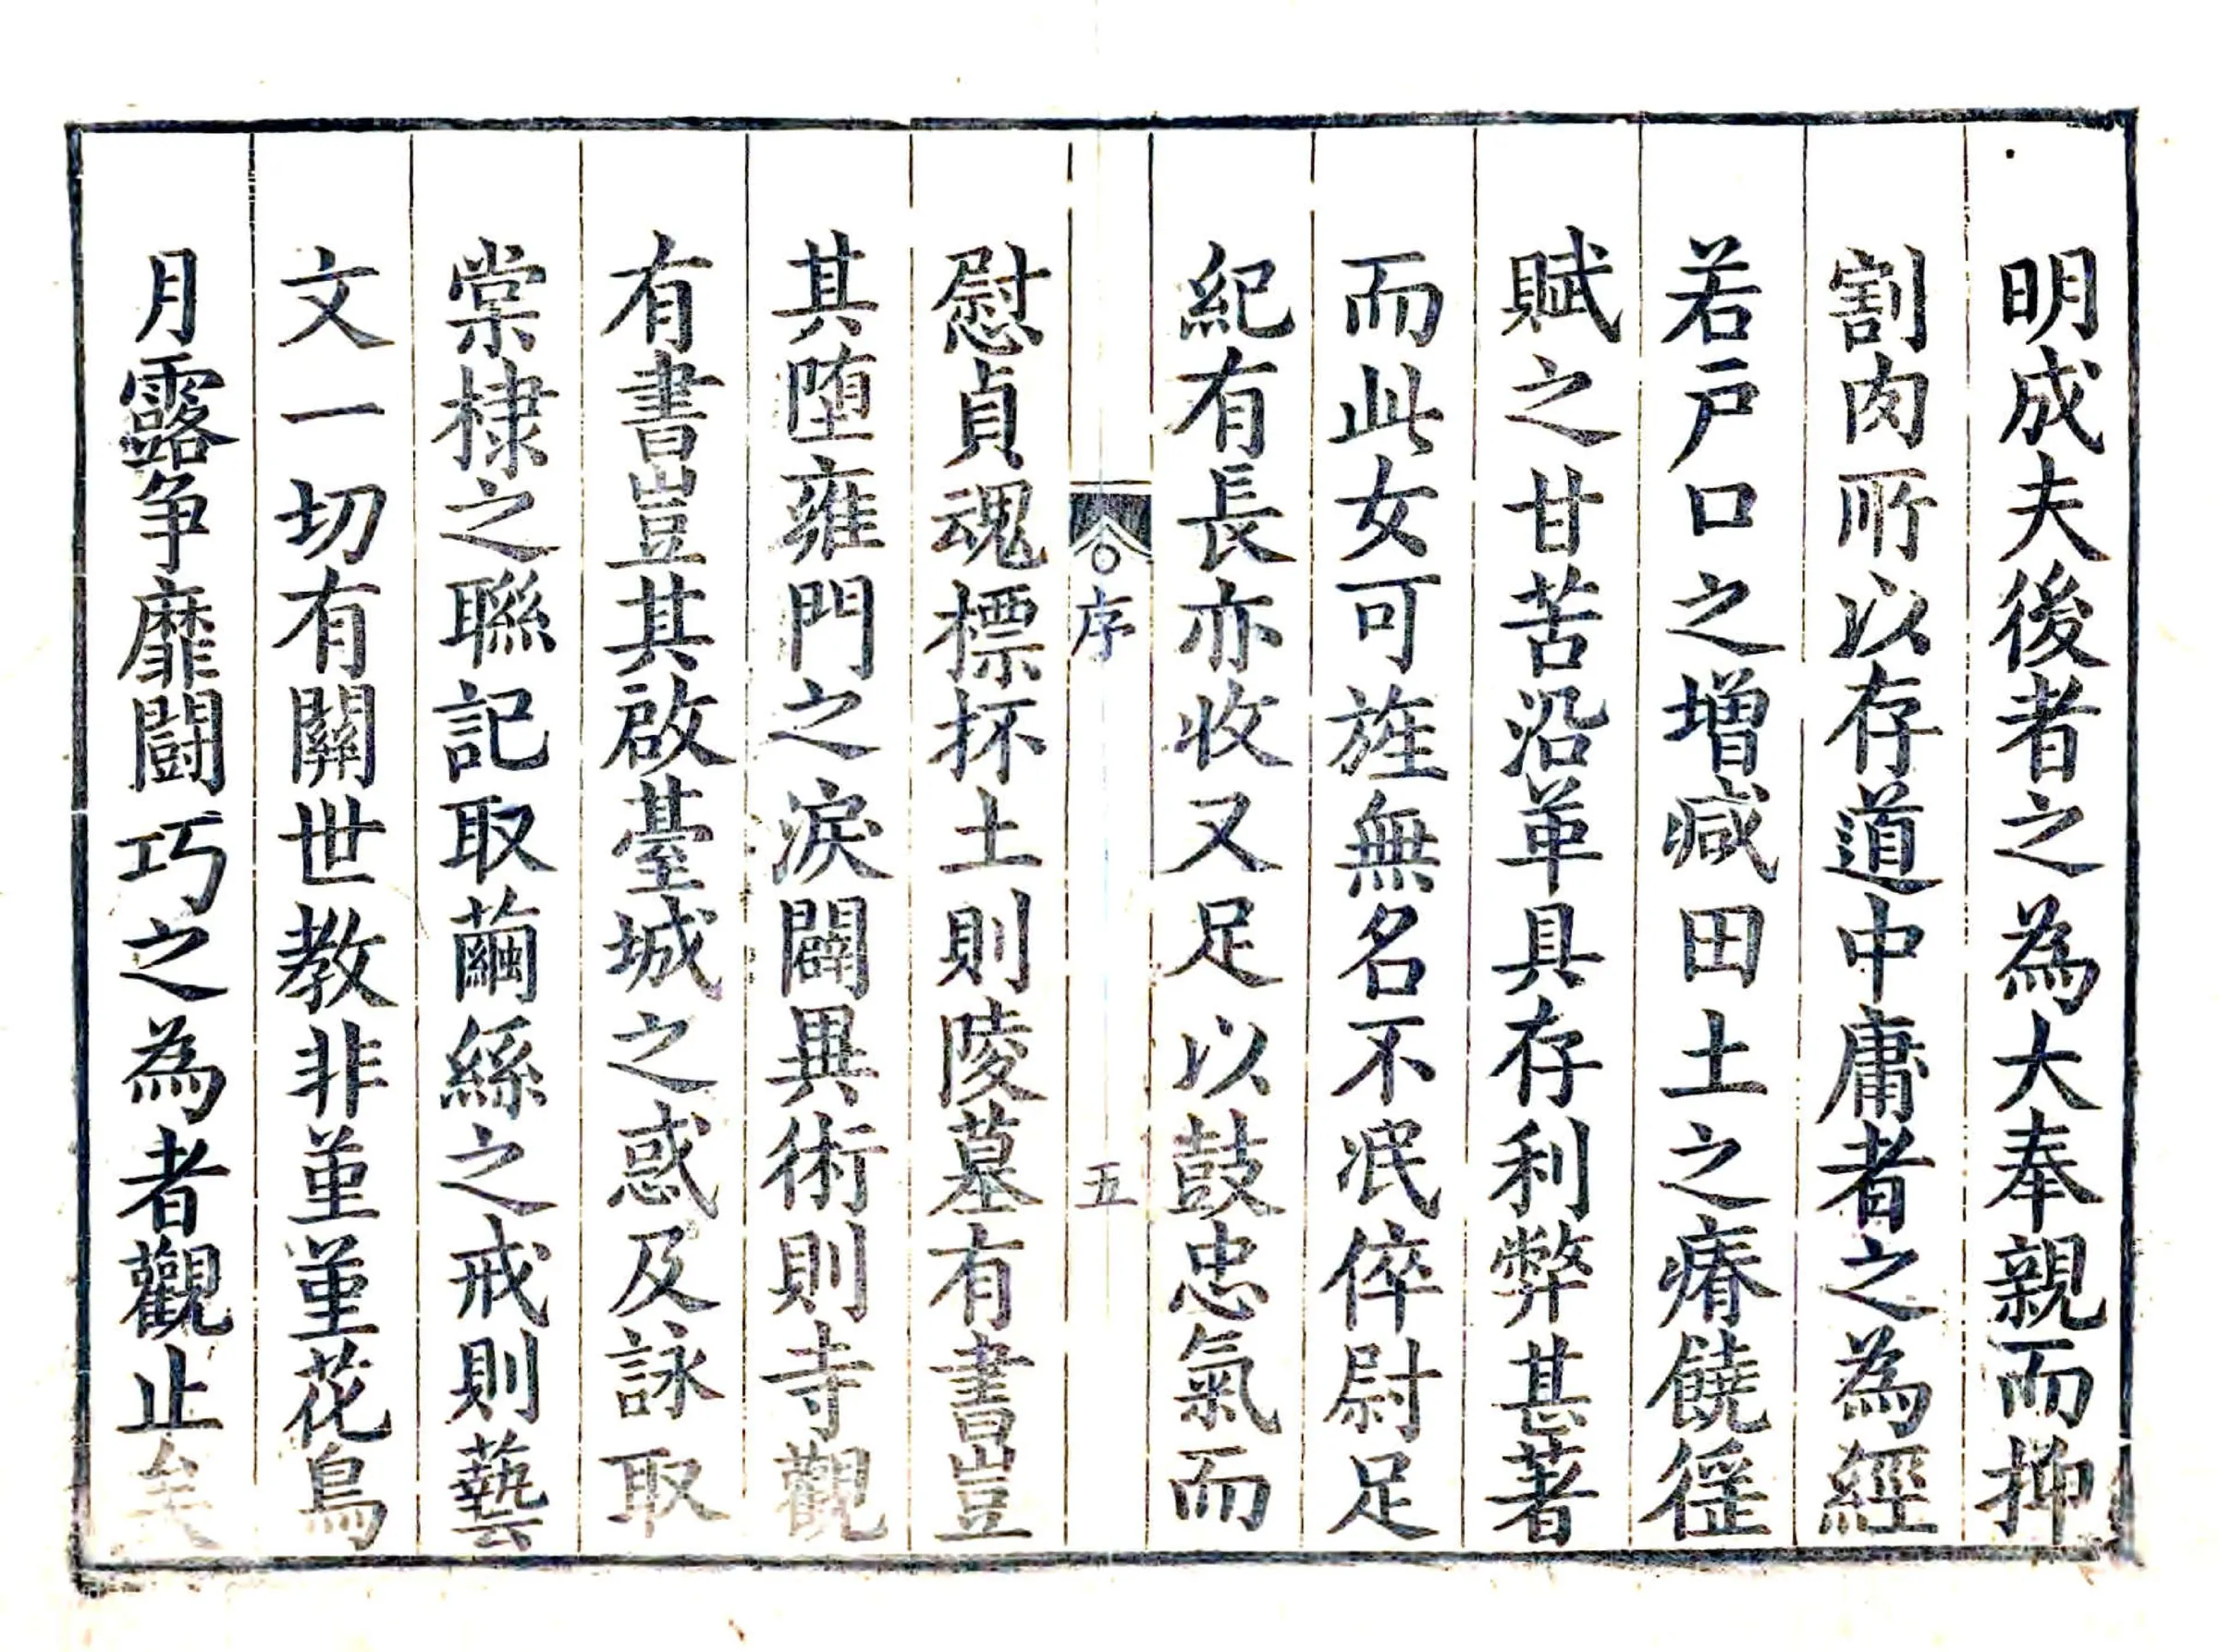 明成夫後者之為大奉親而抑
割肉所以存道中庸者之為經
若戶口之增減田土之瘠饒徑
賦之甘苦沿革具存利弊甚著
而此女可旌無名不泯倅尉足
紀有長亦收又足以鼓忠氣而
序
五
慰貞魂標抔土則陵墓有書豈
其墮雍門之淚闢異術則寺觀
有書豈其啟臺城之惑及詠取
棠棣之聯記取繭絲之戒則藝
文一切有關世教非堇堇花鳥
月露爭靡鬪巧之為者觀止矣